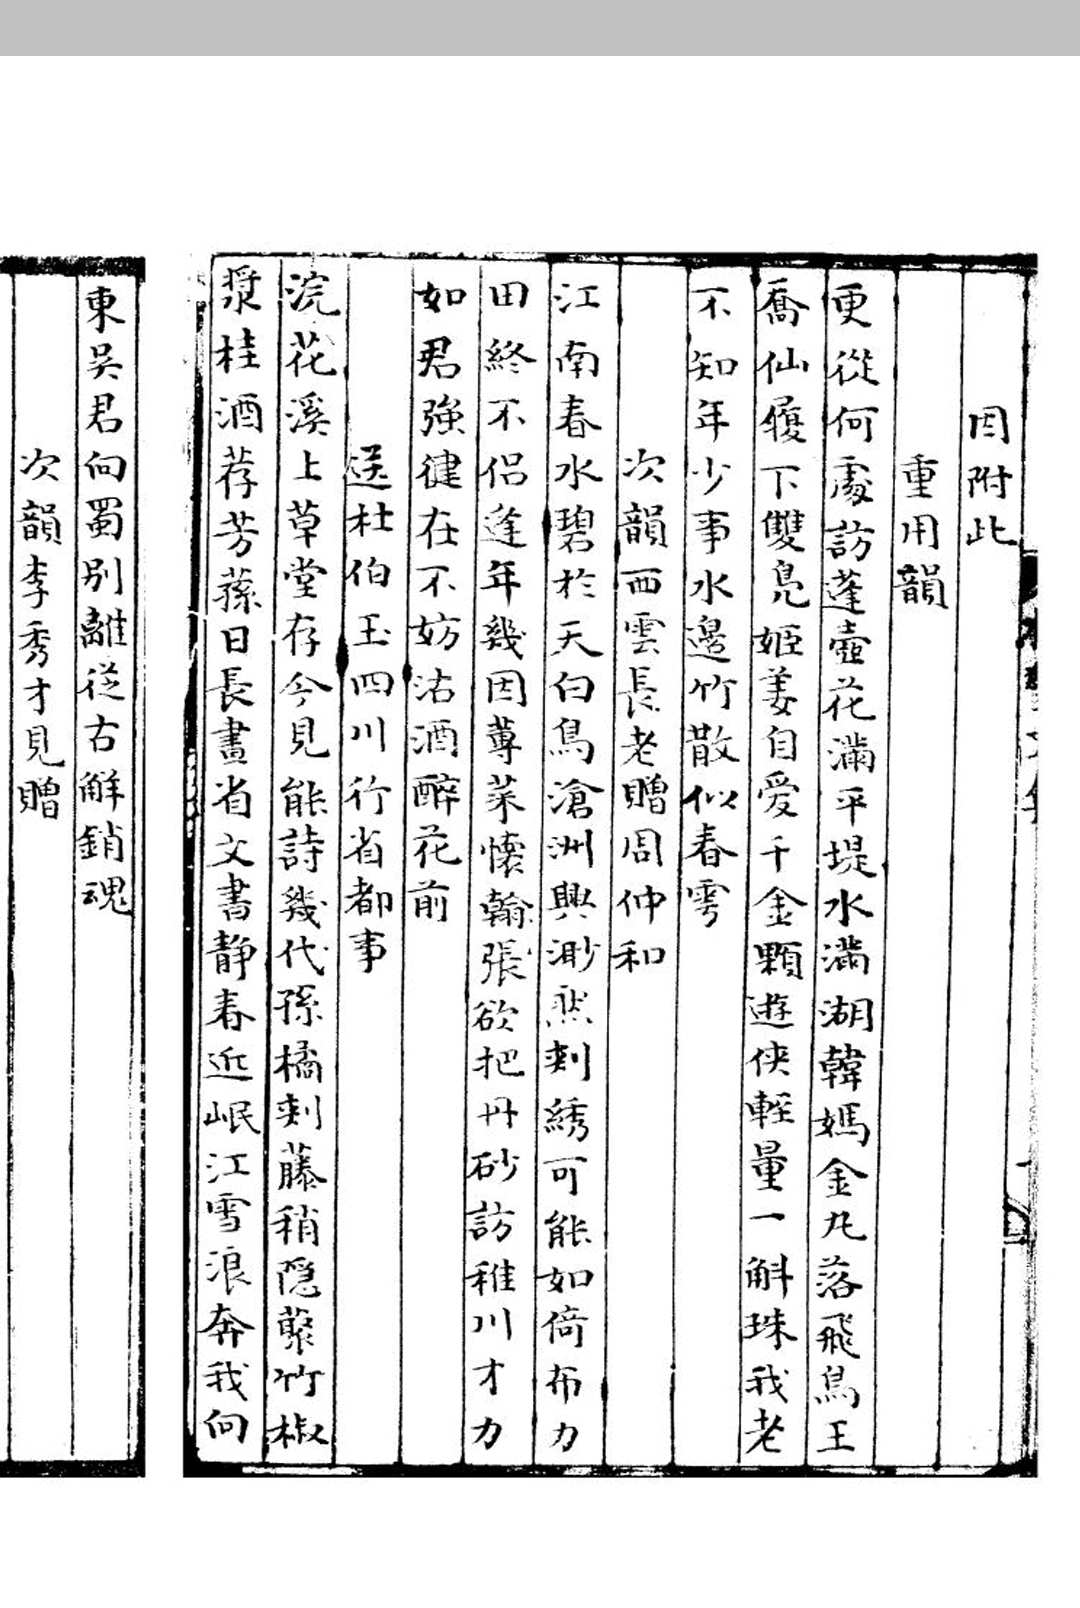 因附此
重用韻
更從何處訪蓬壺花滿平堤水滿湖韓嫣金丸落飛鳥王
喬仙履下雙鳧姬姜自愛千金顆遊俠輕量一斛珠我老
不知年少事水邊竹散似春雩
次韻西雲長老贈周仲和
江南春水碧於天白鳥滄洲興渺然刺綉可能如倚布力
田終不侶逢年幾因蓴菜懷翰張欲把丹砂訪稚川才力
如君強健在不妨沽酒醉花前
送杜伯玉四川行省都事
浣花溪上草堂存今見能詩幾代孫橘刺藤稍隱藂竹椒
漿桂酒荐芳蓀日長畫省文書静春近岷江雪浪奔我向
東吳君向蜀別離從古解銷魂
次韻李秀才見贈